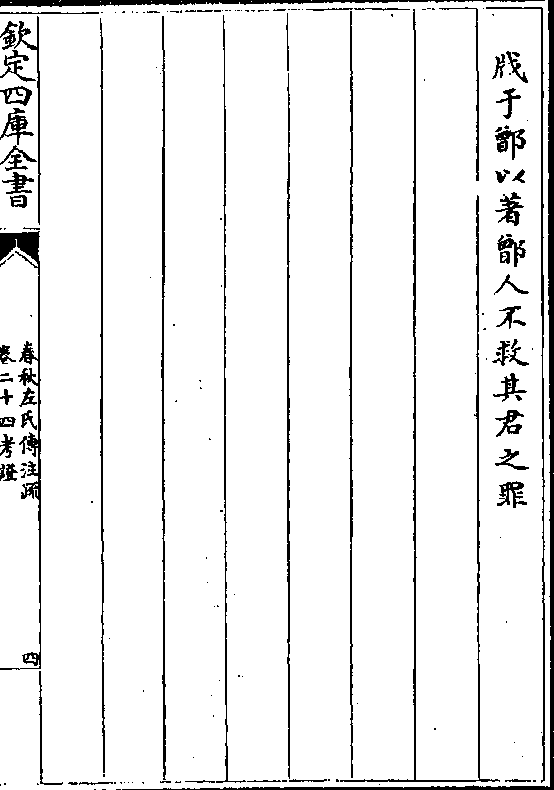 戕于鄫以著鄫人不救其君之罪
欽定四庫全書
春秋左氏傳注疏
卷二十四考證
四